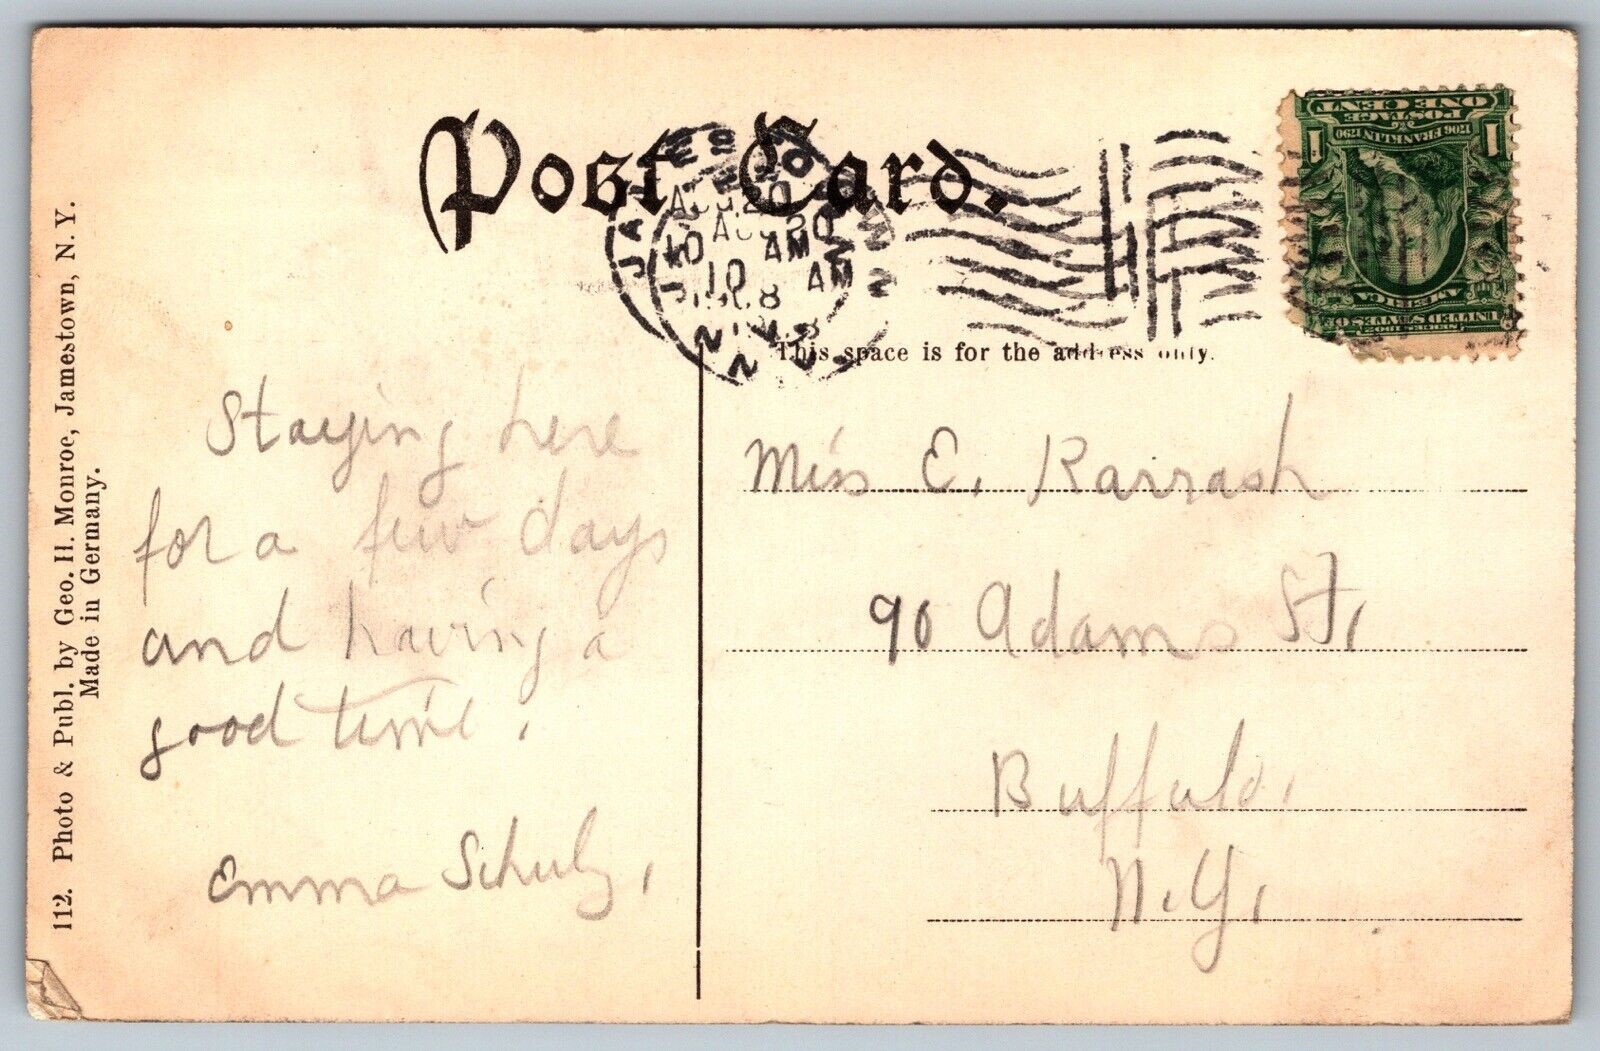 Post Card.
AUG 20
10 AM
N.Y.
ONE CENT
POSTAGE
1706 FRANKLIN 1790
1 1
SERIES 1902
UNITED STATES OF
AMERICA
This space is for the address only.
Staying here
for a few days
and having a
good time.
Emma Schulz,
Miss E. Karrash
90 Adams St,
Buffalo,
N.Y,
112. Photo & Publ. by Geo. H. Monroe, Jamestown, N. Y.
Made in Germany.